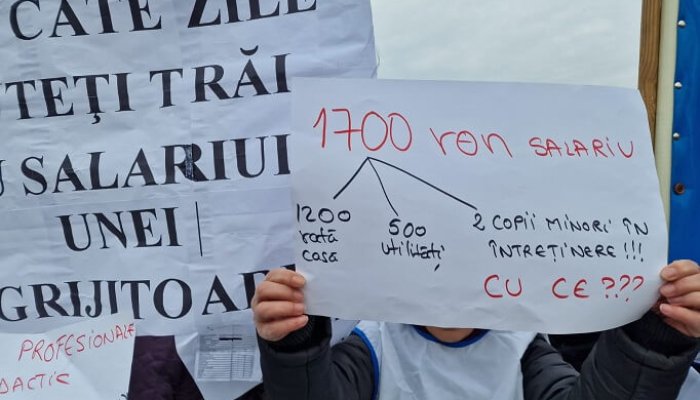 CATE ZILE
TEȚI TRĂI
SALARIUL
UNEI
GRIJITOARE
PROFESIONALE
1700 ron SALARIU
1200
rată
casa
500
utilități
2 COPII MINORI ÎN
ÎNTREȚINERE!!!
CU CE???